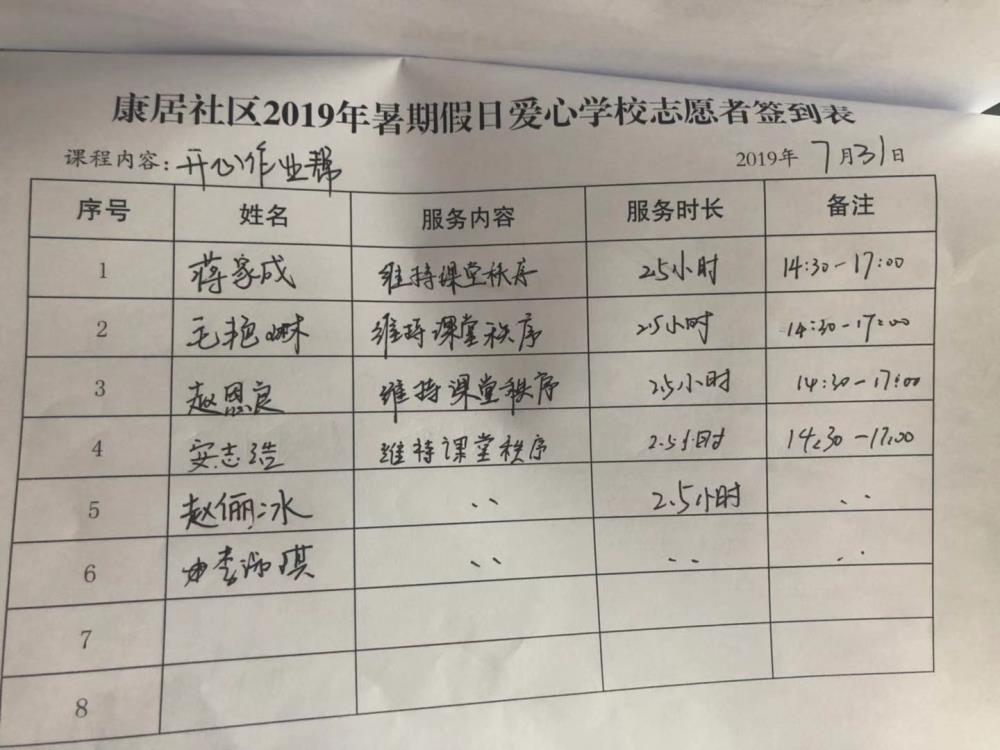 康居社区2019年暑期假日爱心学校志愿者签到表
课程内容:开心作业帮 2019年7月31日
序号 姓名 服务内容 服务时长 备注
1 蒋家成 维持课堂秩序 2.5小时 14:30-17:00
2 毛艳琳 维持课堂秩序 2.5小时 14:30-17:00
3 赵恩良 维持课堂秩序 2.5小时 14:30-17:00
4 安志浩 维持课堂秩序 2.5小时 14:30-17:00
5 赵俪冰 、、 2.5小时 、、
6 李 琪 、、 、、 、、
7
8